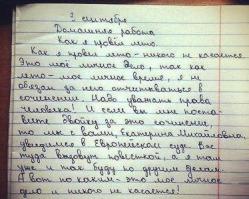 3 сентября
Домашняя работа
Как я провёл лето
Как я провёл лето - никого не касается.
Это моё личное дело, так как
лето - мое личное время, я не
обязан за него отчитываться в
сочинении. Надо уважать права
человека! И если вы мне поста-
вите двойку за это сочинение,
то мы с вами, Екатерина Михайловна,
увидимся в Европейском суде. Вас
туда вызовут повесткой, а я там
уже и так буду по другим делам.
А вот по каким - это моё личное
дело и никого не касается!